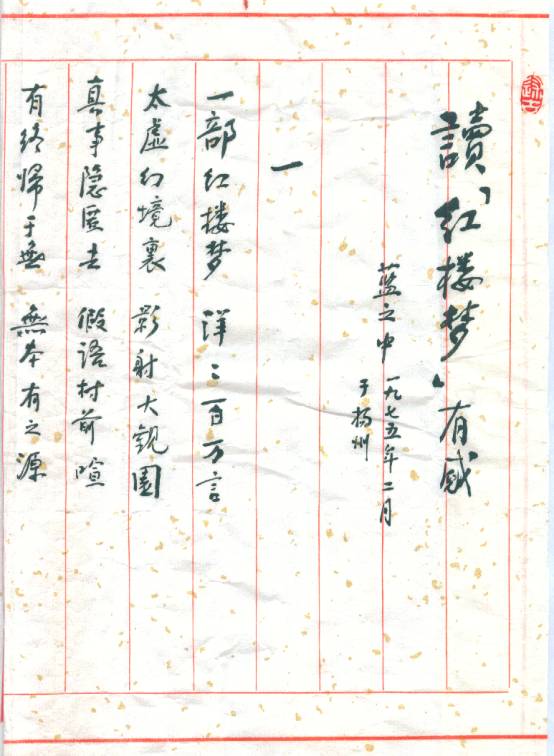 讀「红楼梦」有感
蓝之中 一九七五年二月
于扬州
一
一部红楼梦 洋〻百万言
太虚幻境裏 影射大观園
真事隐匿去 假语村前喧
有终归于無 無本有之源